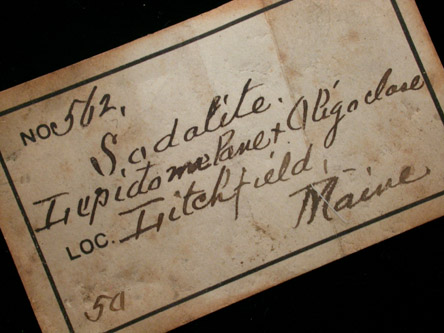 NO. 562.
Sodalite.
Lepidomelane + Oligoclase
LOC. Litchfield,
Maine
50